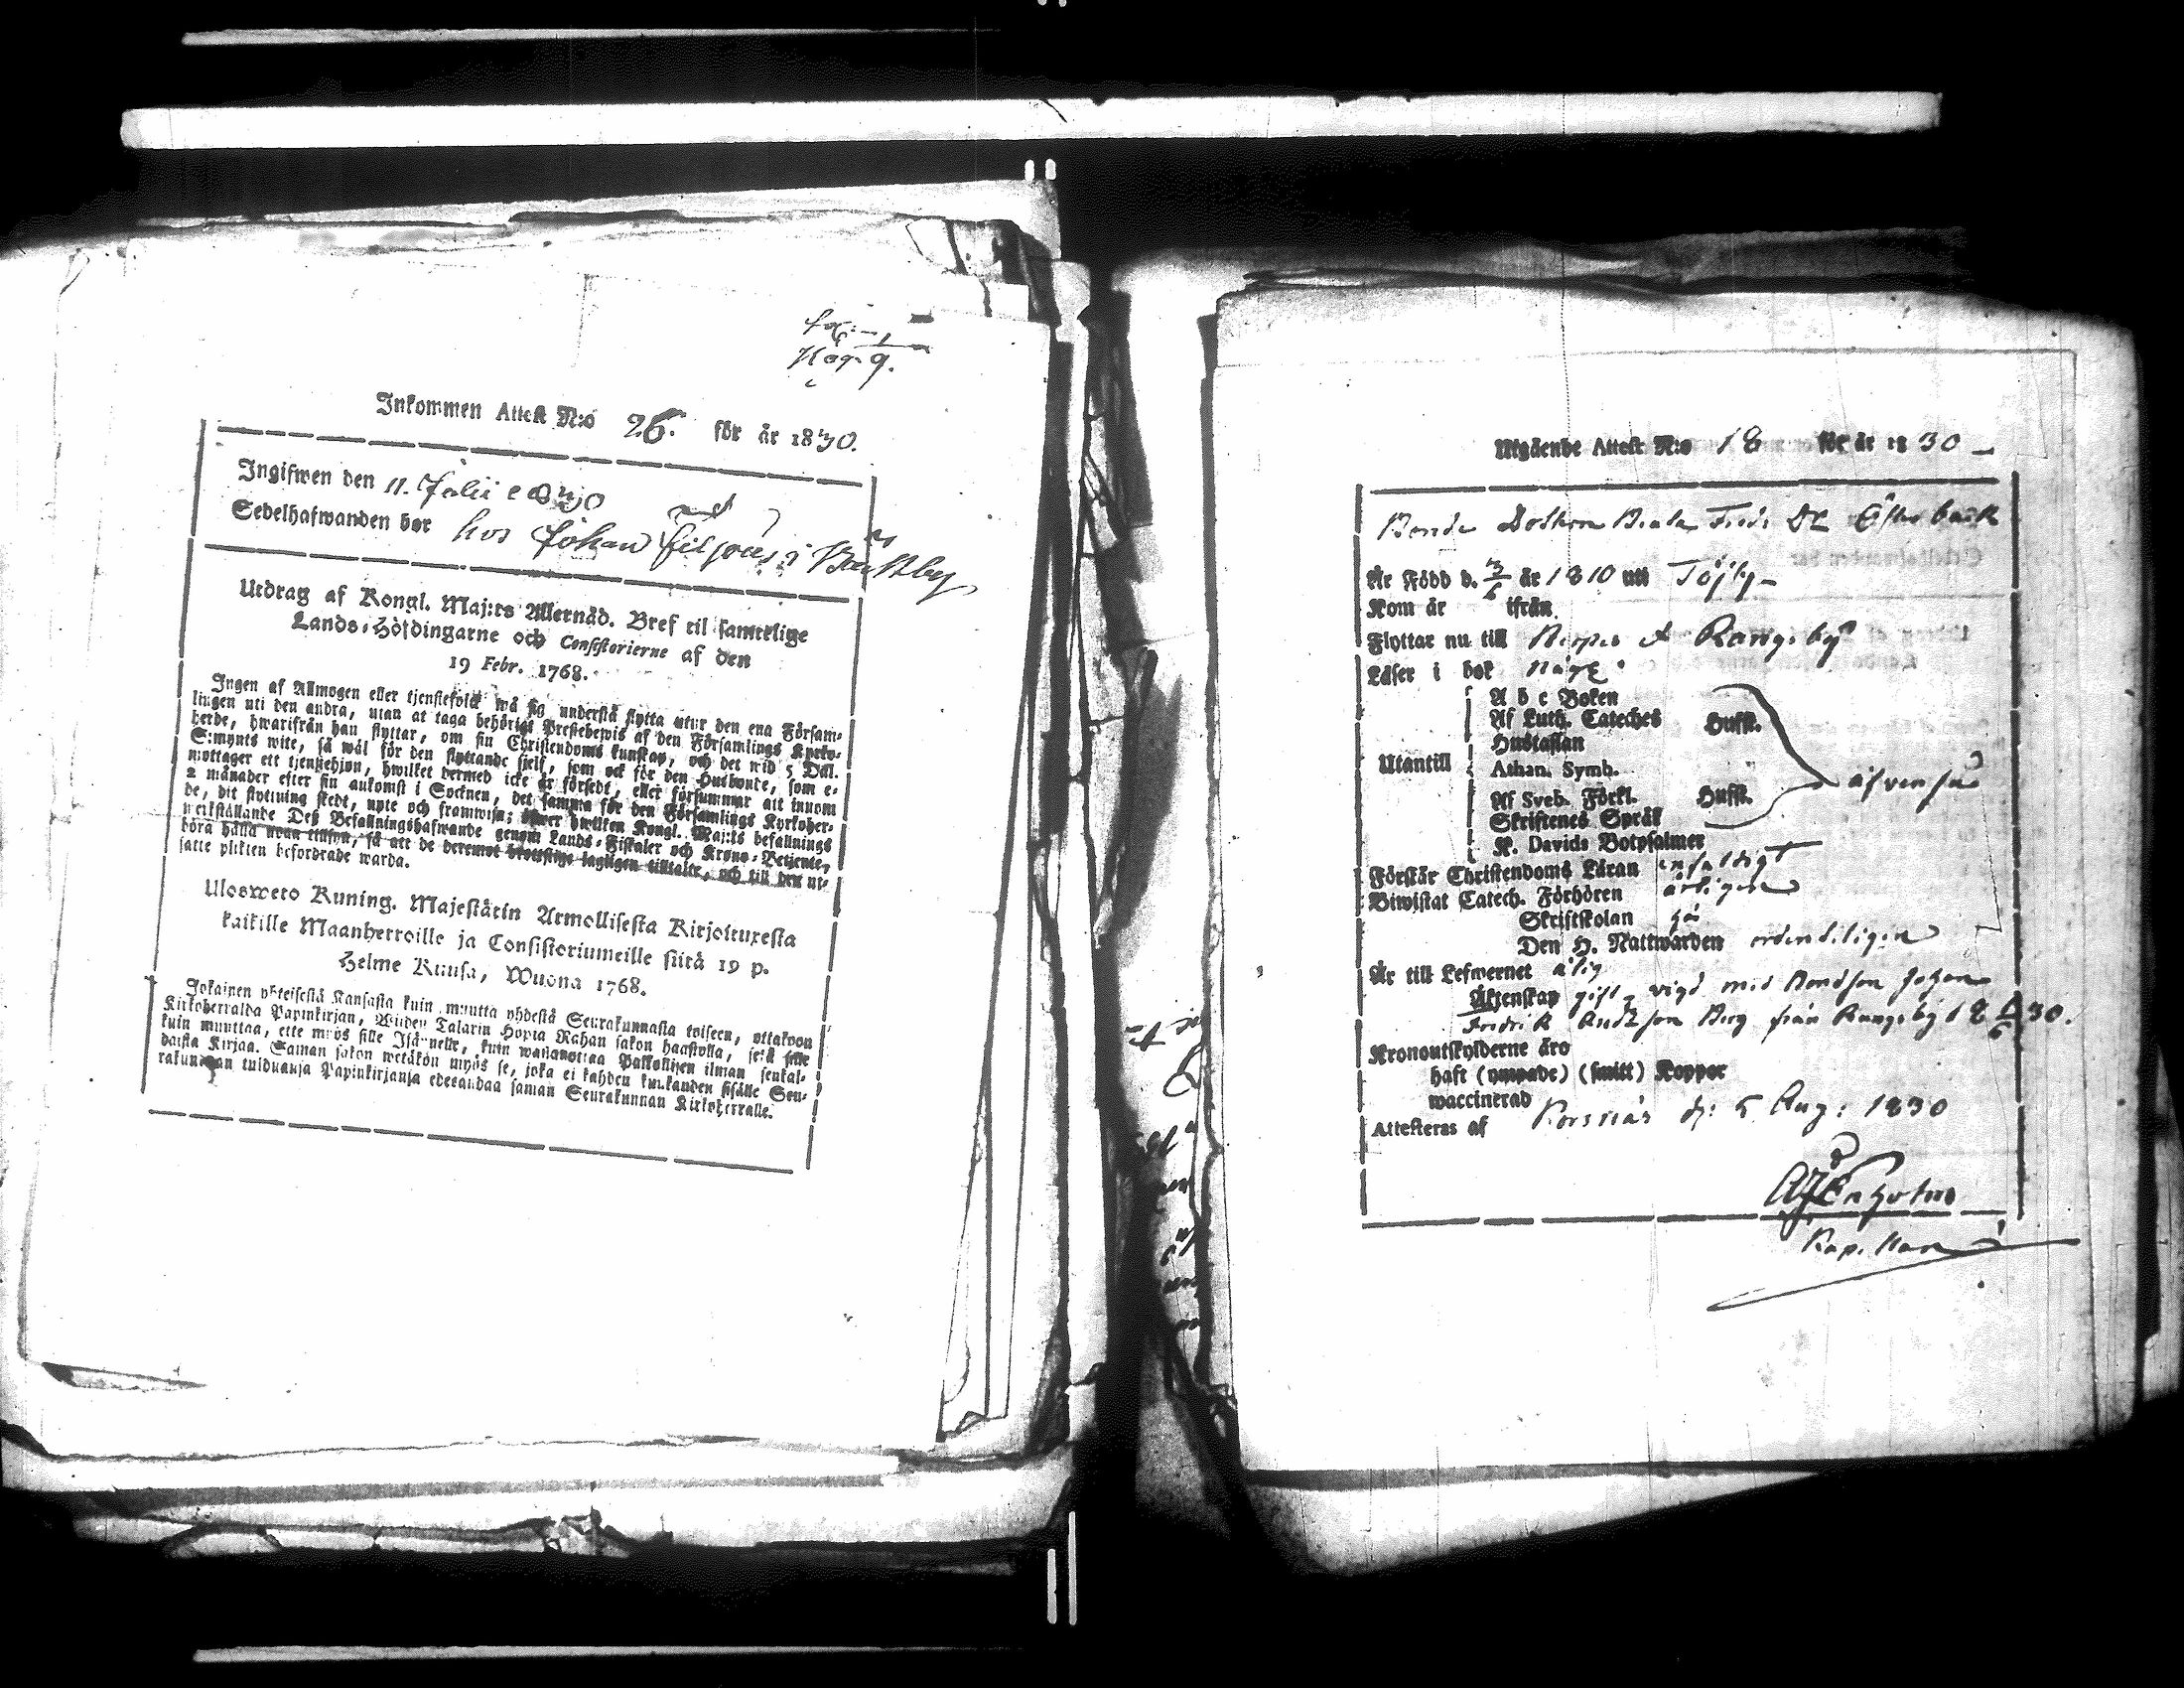 Pag. 9.
Inkommen Attest N:o 26. för år 1830.
Ingifwen den 11. Julii 1830
Sedelhafwanden bor hos Johan i
Utdrag af Kongl. Maj:ts Allernåd. Bref til samtelige
Lands-Höfdingarne och Consistorierne af den
19 Febr. 1768.
Ingen af Allmogen eller tjenstefolck må sig understå flytta utur den ena Försam-
lingen uti den andra, utan at taga behörigt Prestebewis af den Församlings Kyrko-
herde, hwarifrån han flyttar, om sin Christendoms kunskap, och det wid 5 Dal.
S:mynts wite, så wäl för den flyttande sjelf, som ock för den Husbonde, som e-
mottager ett tjenstehjon, hwilket dermed icke är försedt, eller försummar att innom
2 månader efter sin ankomst i Socknen, det samma för den Församlings Kyrkoher-
de, dit flyttning skedt, upte och framwisa; öfwer hwilken Kongl. Maj:ts befallnings
werkställande Deß Befallningshafwande genom Lands-Fiskaler och Krono-Betjente,
böra hålla noan tillsyn, så att de deremot brottslige lagligen tilltalte, och till den ut-
satte plikten befordrade warda.
Ulosweto Kuning. Majestätin Armollisesta Kirjoituxesta
kaikille Maanherroille ja Consistoriumeille siitä 19 p.
Helme Kuusa, Wuona 1768.
Jokainen yhteisestä Kansasta kuin muutta yhdestä Seurakunnasta toiseen, ottakoon
Kirkoherralda Papinkirjan, Wiiden Talarin Hopia Rahan sakon haastolla, sekä sille
kuin muuttaa, ette myös sille Isännelle, kuin wastanottaa Palkollisen ilman senkal-
daista Kirjaa. Saman sakon wetäkön myös se, joka ei kahden kuukauden sisälle Seu-
rakundaan tulduansa Papinkirjansa edesandaa saman Seurakunnan Kirkoherralle.
Utgående Attest N:o 18 för år 1830
Bonde Dottern Beata Fredr. Dr Öfverback
Är Född d. 3/6 år 1810 uti Töjby
Kom år ifrån
Flyttar nu till Berpes o Rangsby
Läser i bok någt
A b c Boken
Af Luth. Cateches Hufst.
Hustaflan
Utantill Athan. Symb. äfven så
Af Sveb. Förkl. Hufst.
Skriftenes Språk
K. Davids Botpsalmer
Förstår Christendoms Läran enfaldigt
Biwistat Catech. Förhören årligen
Skriftskolan går
Den H. Nattwarden ordentligen
Är till Lefwernet ärlig
Äktenskap gift, vigd med Bondson Johan
Fredrik Andersson Berg från Rangsby 1830.
Kronoutskylderne äro
haft (ympade) (smitt) Koppor
waccinerad
Attesteras af Korsnäs d: 5 Aug: 1830
Kapellan